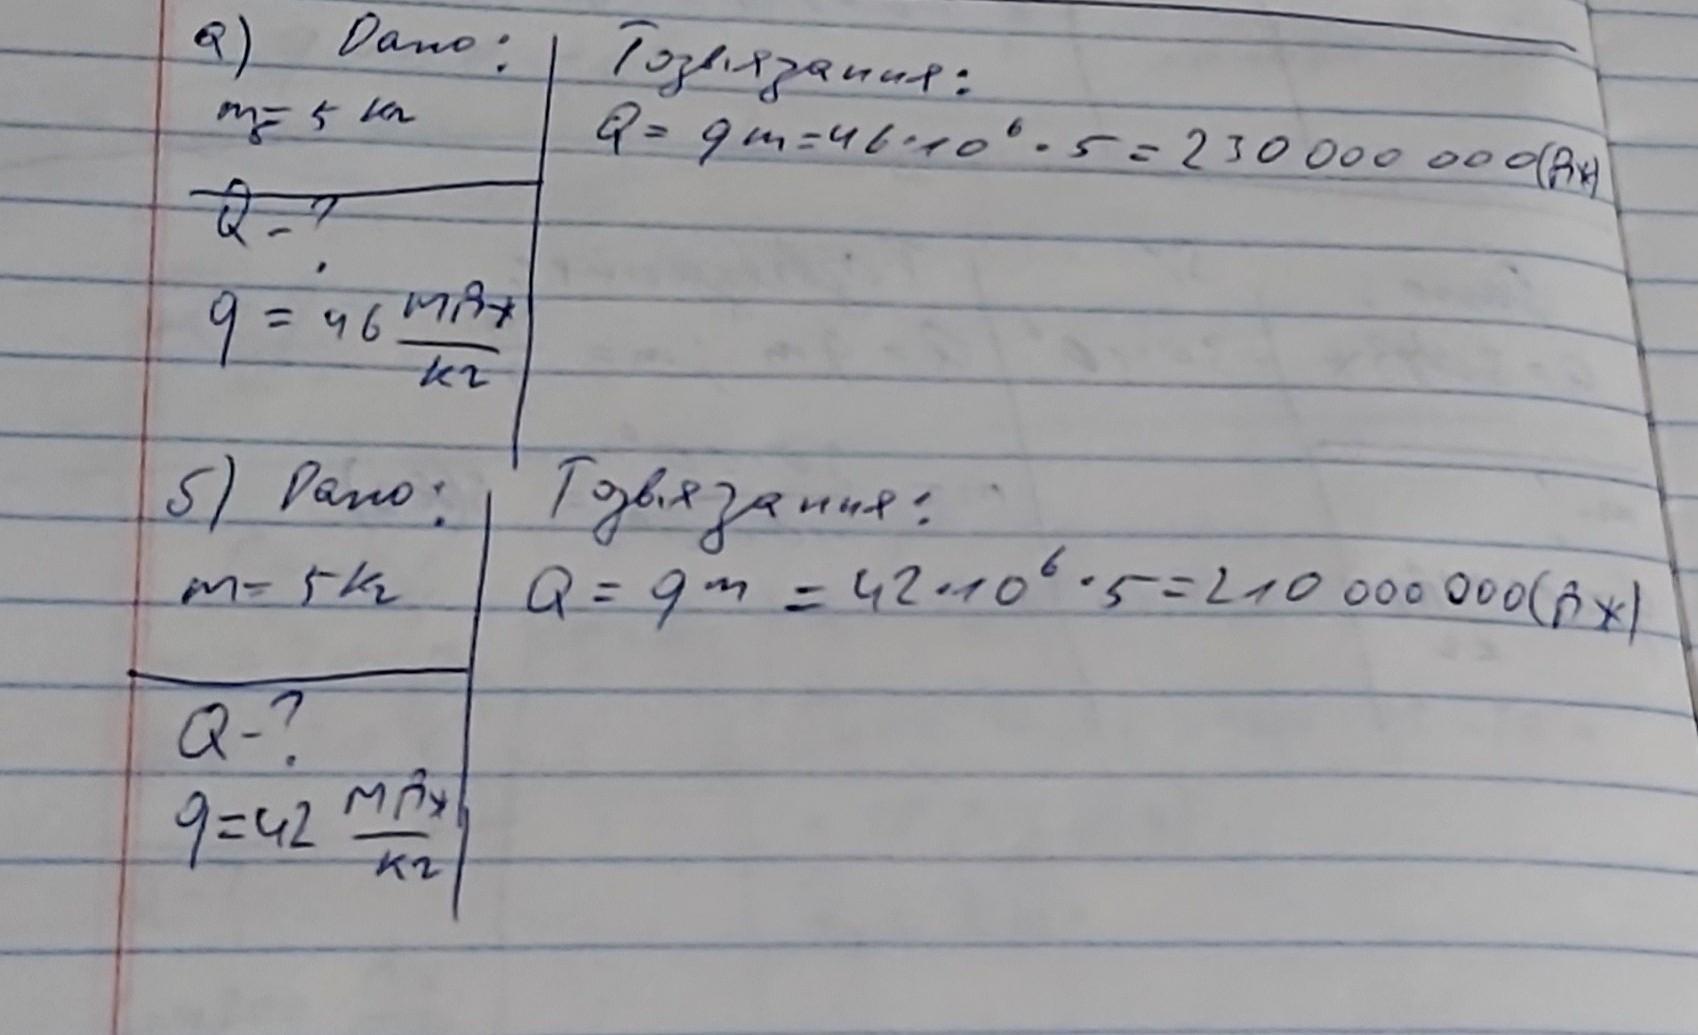 а) Дано:
m = 5 кг
Q - ?
q = 46 МДж/кг
Розв'язання:
Q = qm = 46 · 10⁶ · 5 = 230 000 000 (Дж)
б) Дано:
m = 5 кг
Q - ?
q = 42 МДж/кг
Розв'язання:
Q = qm = 42 · 10⁶ · 5 = 210 000 000 (Дж)